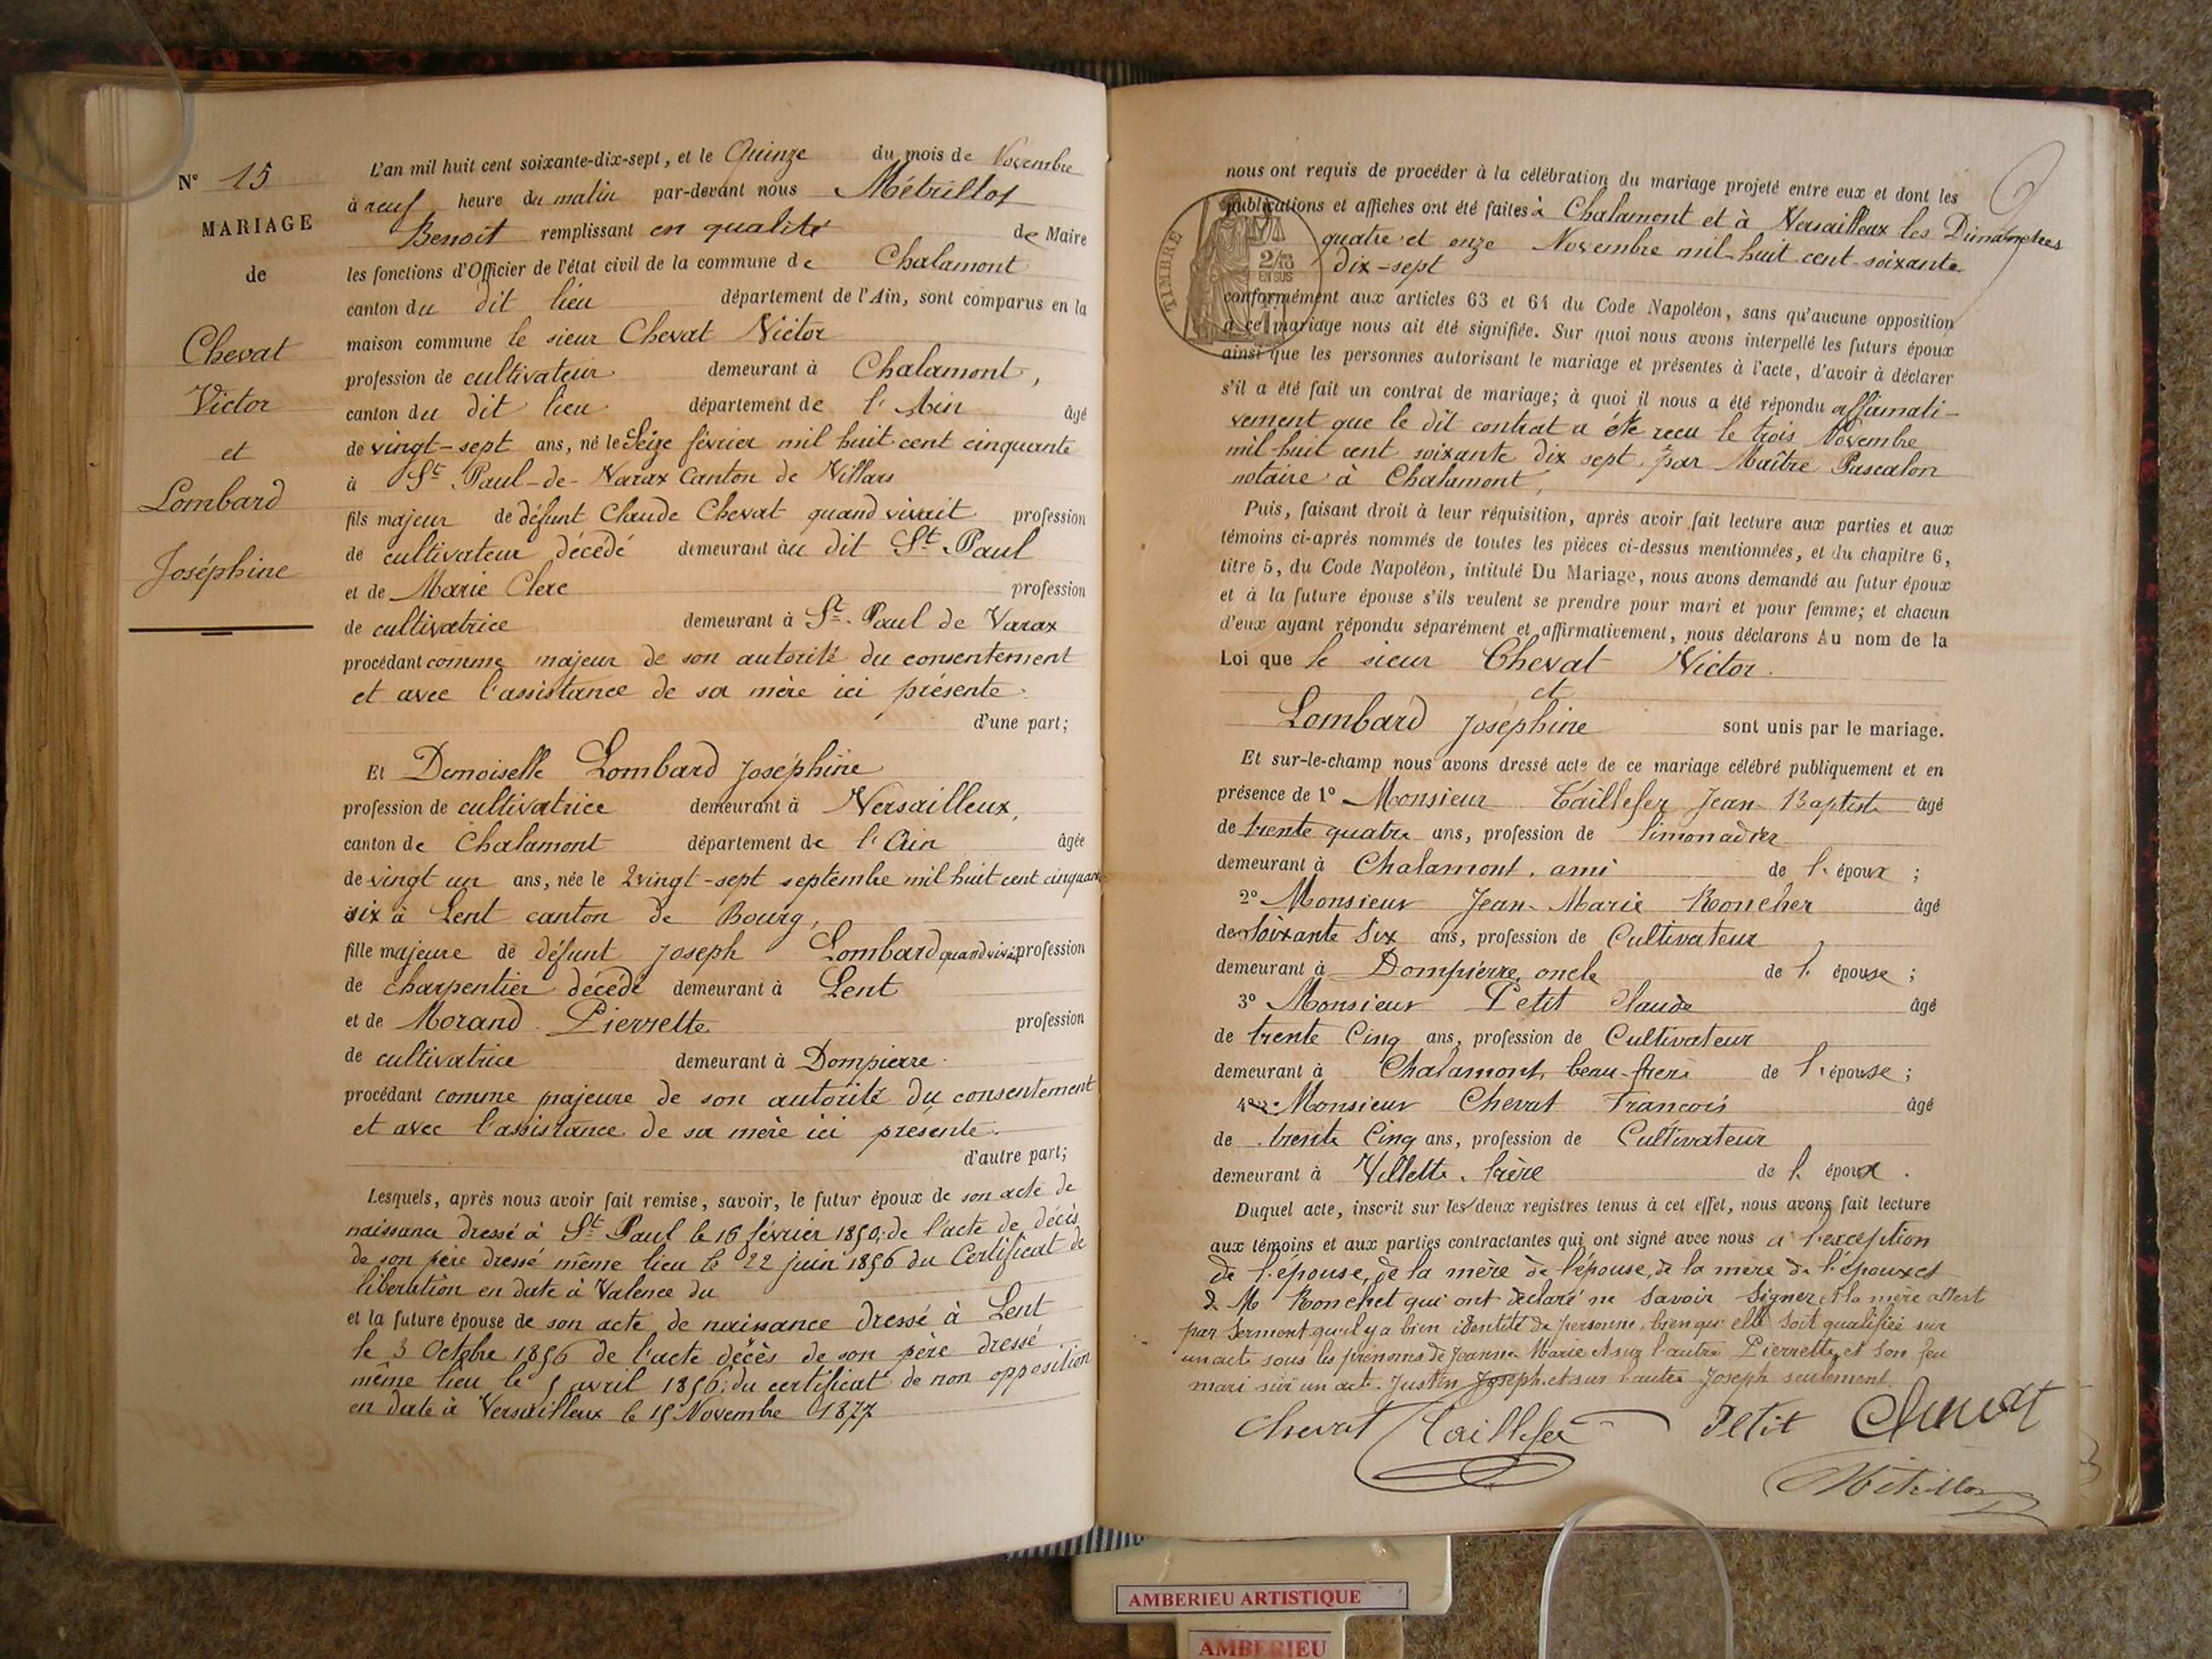 N° 15
MARIAGE
de
Chevat
Victor
et
Lombard
Joséphine
L'an mil huit cent soixante-dix-sept, et le Quinze du mois de Novembre
à neuf heure du matin par-devant nous Métrillot
Benoit remplissant en qualité de Maire
les fonctions d'Officier de l'état civil de la commune de Chalamont
canton du dit lieu département de l'Ain, sont comparus en la
maison commune le sieur Chevat Victor
profession de cultivateur demeurant à Chalamont,
canton du dit lieu département de l'Ain âgé
de vingt-sept ans, né le Seize février mil huit cent cinquante
à St Paul-de-Varax Canton de Villars
fils majeur de défunt Claude Chevat quand vivait profession
de cultivateur décédé demeurant au dit St Paul
et de Marie Clerc profession
de cultivatrice demeurant à St Paul de Varax
procédant comme majeur de son autorité du consentement
et avec l'assistance de sa mère ici présente.
d'une part;
Et Demoiselle Lombard Joséphine
profession de cultivatrice demeurant à Versailleux,
canton de Chalamont département de l'Ain âgée
de vingt un ans, née le vingt-sept septembre mil huit cent cinquante
six à Lent canton de Bourg,
fille majeure de défunt Joseph Lombard quand vivait profession
de charpentier décédé demeurant à Lent
et de Morand Pierrette profession
de cultivatrice demeurant à Dompierre
procédant comme majeure de son autorité du consentement
et avec l'assistance de sa mère ici présente.
d'autre part;
Lesquels, après nous avoir fait remise, savoir, le futur époux de son acte de
naissance dressé à St Paul le 16 février 1850; de l'acte de décès
de son père dressé même lieu le 22 juin 1856 du Certificat de
libération en date à Valence du
et la future épouse de son acte de naissance dressé à Lent
le 3 Octobre 1856 de l'acte décès de son père dressé
même lieu le 5 avril 1856; du certificat de non opposition
en date à Versailleux le 15 Novembre 1877
nous ont requis de procéder à la célébration du mariage projeté entre eux et dont les
publications et affiches ont été faites à Chalamont et à Versailleux les Dimanches
quatre et onze Novembre mil-huit cent-soixante
dix-sept
TIMBRE
EN SUS
conformément aux articles 63 et 64 du Code Napoléon, sans qu'aucune opposition
à ce mariage nous ait été signifiée. Sur quoi nous avons interpellé les futurs époux
ainsi que les personnes autorisant le mariage et présentes à l'acte, d'avoir à déclarer
s'il a été fait un contrat de mariage; à quoi il nous a été répondu affirmati-
vement que le dit contrat a été reçu le trois Novembre
mil huit cent soixante dix sept par Maître Pascalon
notaire à Chalamont,
Puis, faisant droit à leur réquisition, après avoir fait lecture aux parties et aux
témoins ci-après nommés de toutes les pièces ci-dessus mentionnées, et du chapitre 6,
titre 5, du Code Napoléon, intitulé Du Mariage, nous avons demandé au futur époux
et à la future épouse s'ils veulent se prendre pour mari et pour femme; et chacun
d'eux ayant répondu séparément et affirmativement, nous déclarons Au nom de la
Loi que le sieur Chevat Victor.
et
Lombard Joséphine sont unis par le mariage.
Et sur-le-champ nous avons dressé acte de ce mariage célébré publiquement et en
présence de 1° Monsieur Taillefer Jean Baptiste âgé
de trente quatre ans, profession de limonadier
demeurant à Chalamont, ami de l'époux ;
2° Monsieur Jean-Marie Roncher âgé
de Soixante Six ans, profession de Cultivateur
demeurant à Dompierre, oncle de l'épouse ;
3° Monsieur Petit Claude âgé
de trente Cinq ans, profession de Cultivateur
demeurant à Chalamont, beau-frère de l'épouse ;
4° Monsieur Chevat François âgé
de trente Cinq ans, profession de Cultivateur
demeurant à Villette, frère de l'époux.
Duquel acte, inscrit sur les deux registres tenus à cet effet, nous avons fait lecture
aux témoins et aux parties contractantes qui ont signé avec nous à l'exception
de l'épouse, de la mère de l'épouse, de la mère de l'époux et
d M Ronchet qui ont déclaré ne Savoir Signer et la mère attest
par Serment qu'il y a bien identité de personne, bien qu'elle Soit qualifiée sur
un acte sous les prénoms de Jeanne Marie et sur l'autre Pierrette et Son feu
mari sur un acte Justin Joseph et sur l'autre Joseph seulement.
Chevat Taillefer Petit Chevat
Métrillot
AMBERIEU ARTISTIQUE
AMBERIEU